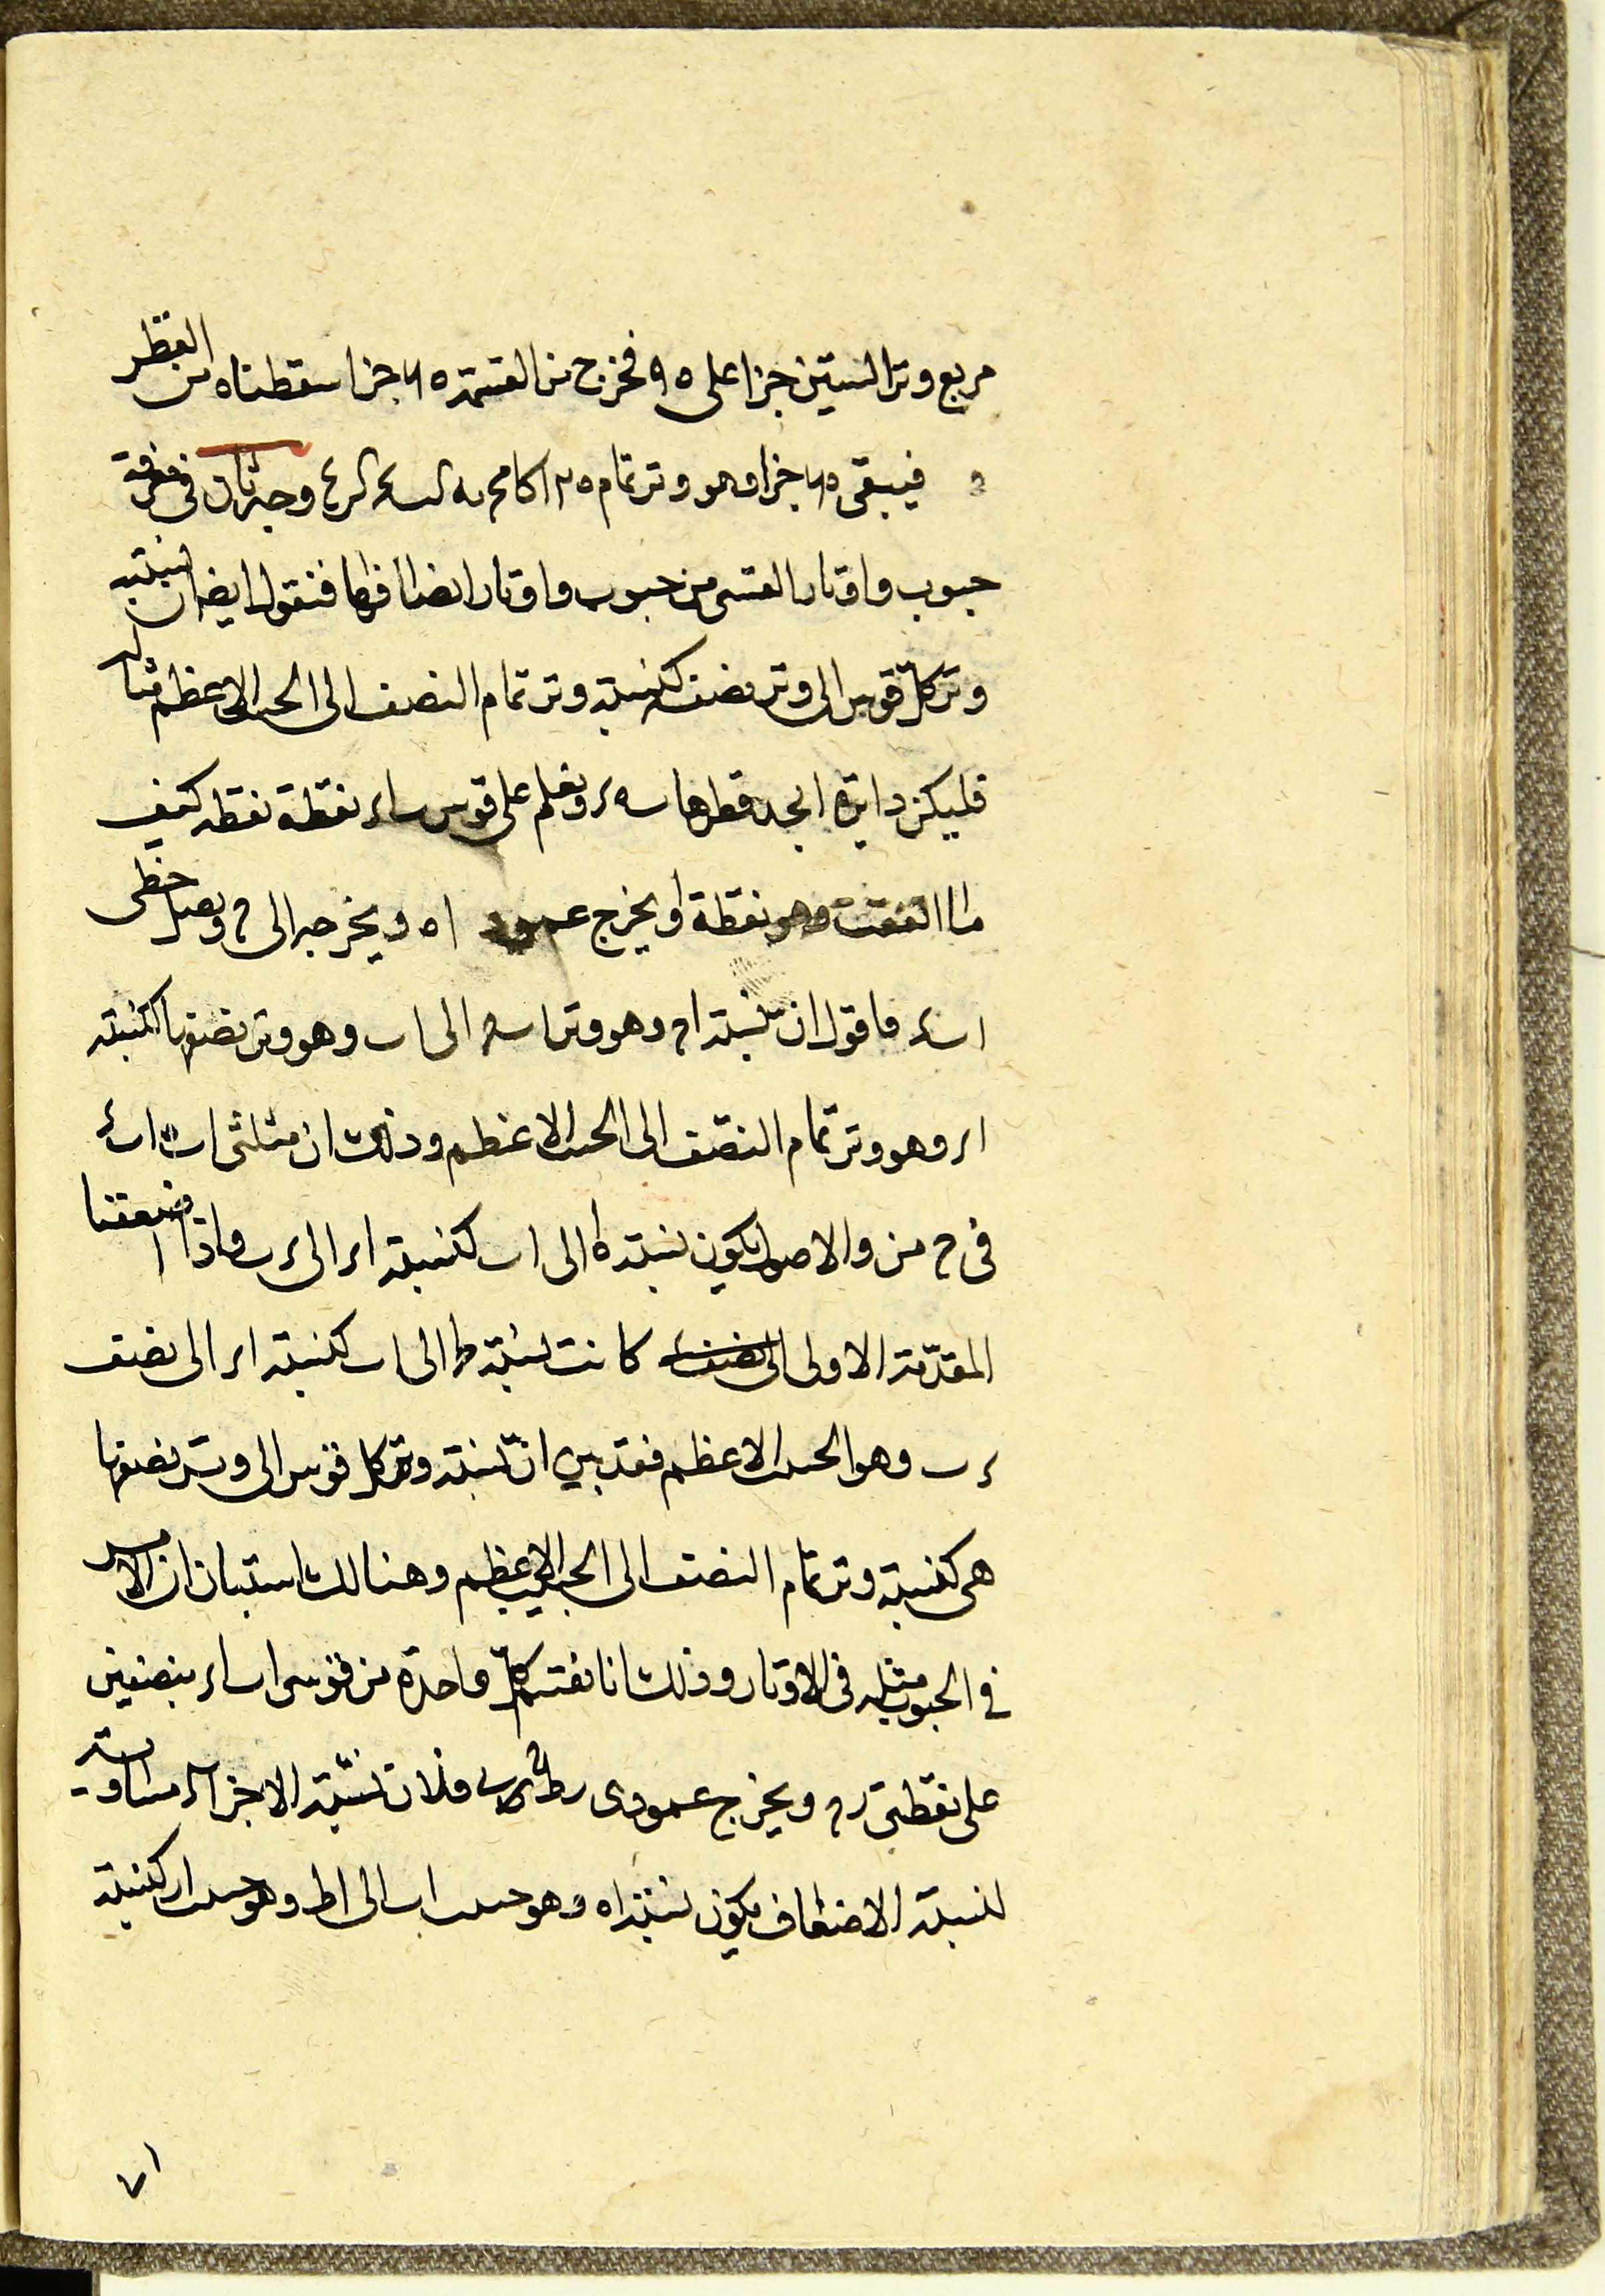 مربع وتر الستين جزا على ٩٥ فخرج من القسمة ٧٥ جزا اسقطناه من القطر
فيبقى ٧٥ جزا وهو وتر تمام ١٢٥ وجه ثان فى معرفة
جيوب واوتار القسى من جيوب واوتار انصافها فنقول ايضا ان نسبة
وتر كل قوس الى وتر نصفه كنسبة وتر تمام النصف الى الجيب الاعظم مثاله
فليكن دايرة ابجد قطرها ب ر ونعلم على قوس ب ا ر نقطة نقطه كيف
ما اتفقت وهو نقطة ا ويخرج عمود ا ه ويخرجه الى ح ويصل خطى
فاقول ان نسبة ا ح وهو وتر ا ب ح الى ا ب وهو وتر نصفها كنسبة
ا ر وهو وتر تمام النصف الى الجيب الاعظم وذلك ان مثلثى
فى ح من و الاصول يكون نسبة ه ا الى ا ب كنسبة ا ر الى ر ب واذا اضعفنا
المقدمة الاولى الى نصف كانت نسبة الى ا ب كنسبة ا ر الى نصف
ر ب وهو الجيب الاعظم فقد تبين ان نسبة وتر كل قوس الى وتر نصفها
هى كنسبة وتر تمام النصف الى الجيب الاعظم وهنالك استبان ان الامر
فى الجيوب مثله فى الاوتار وذلك انا نقسم كل واحدة من قوسى ا ب ا ر بنصفين
على نقطتى ر ح ويخرج عمودى فلان نسبة الاجزاء مساوية
لنسبة الاضعاف يكون نسبة ا ه وهو جيب ا ب الى ا ط وهو جيب ا ر كنسبة
٧١